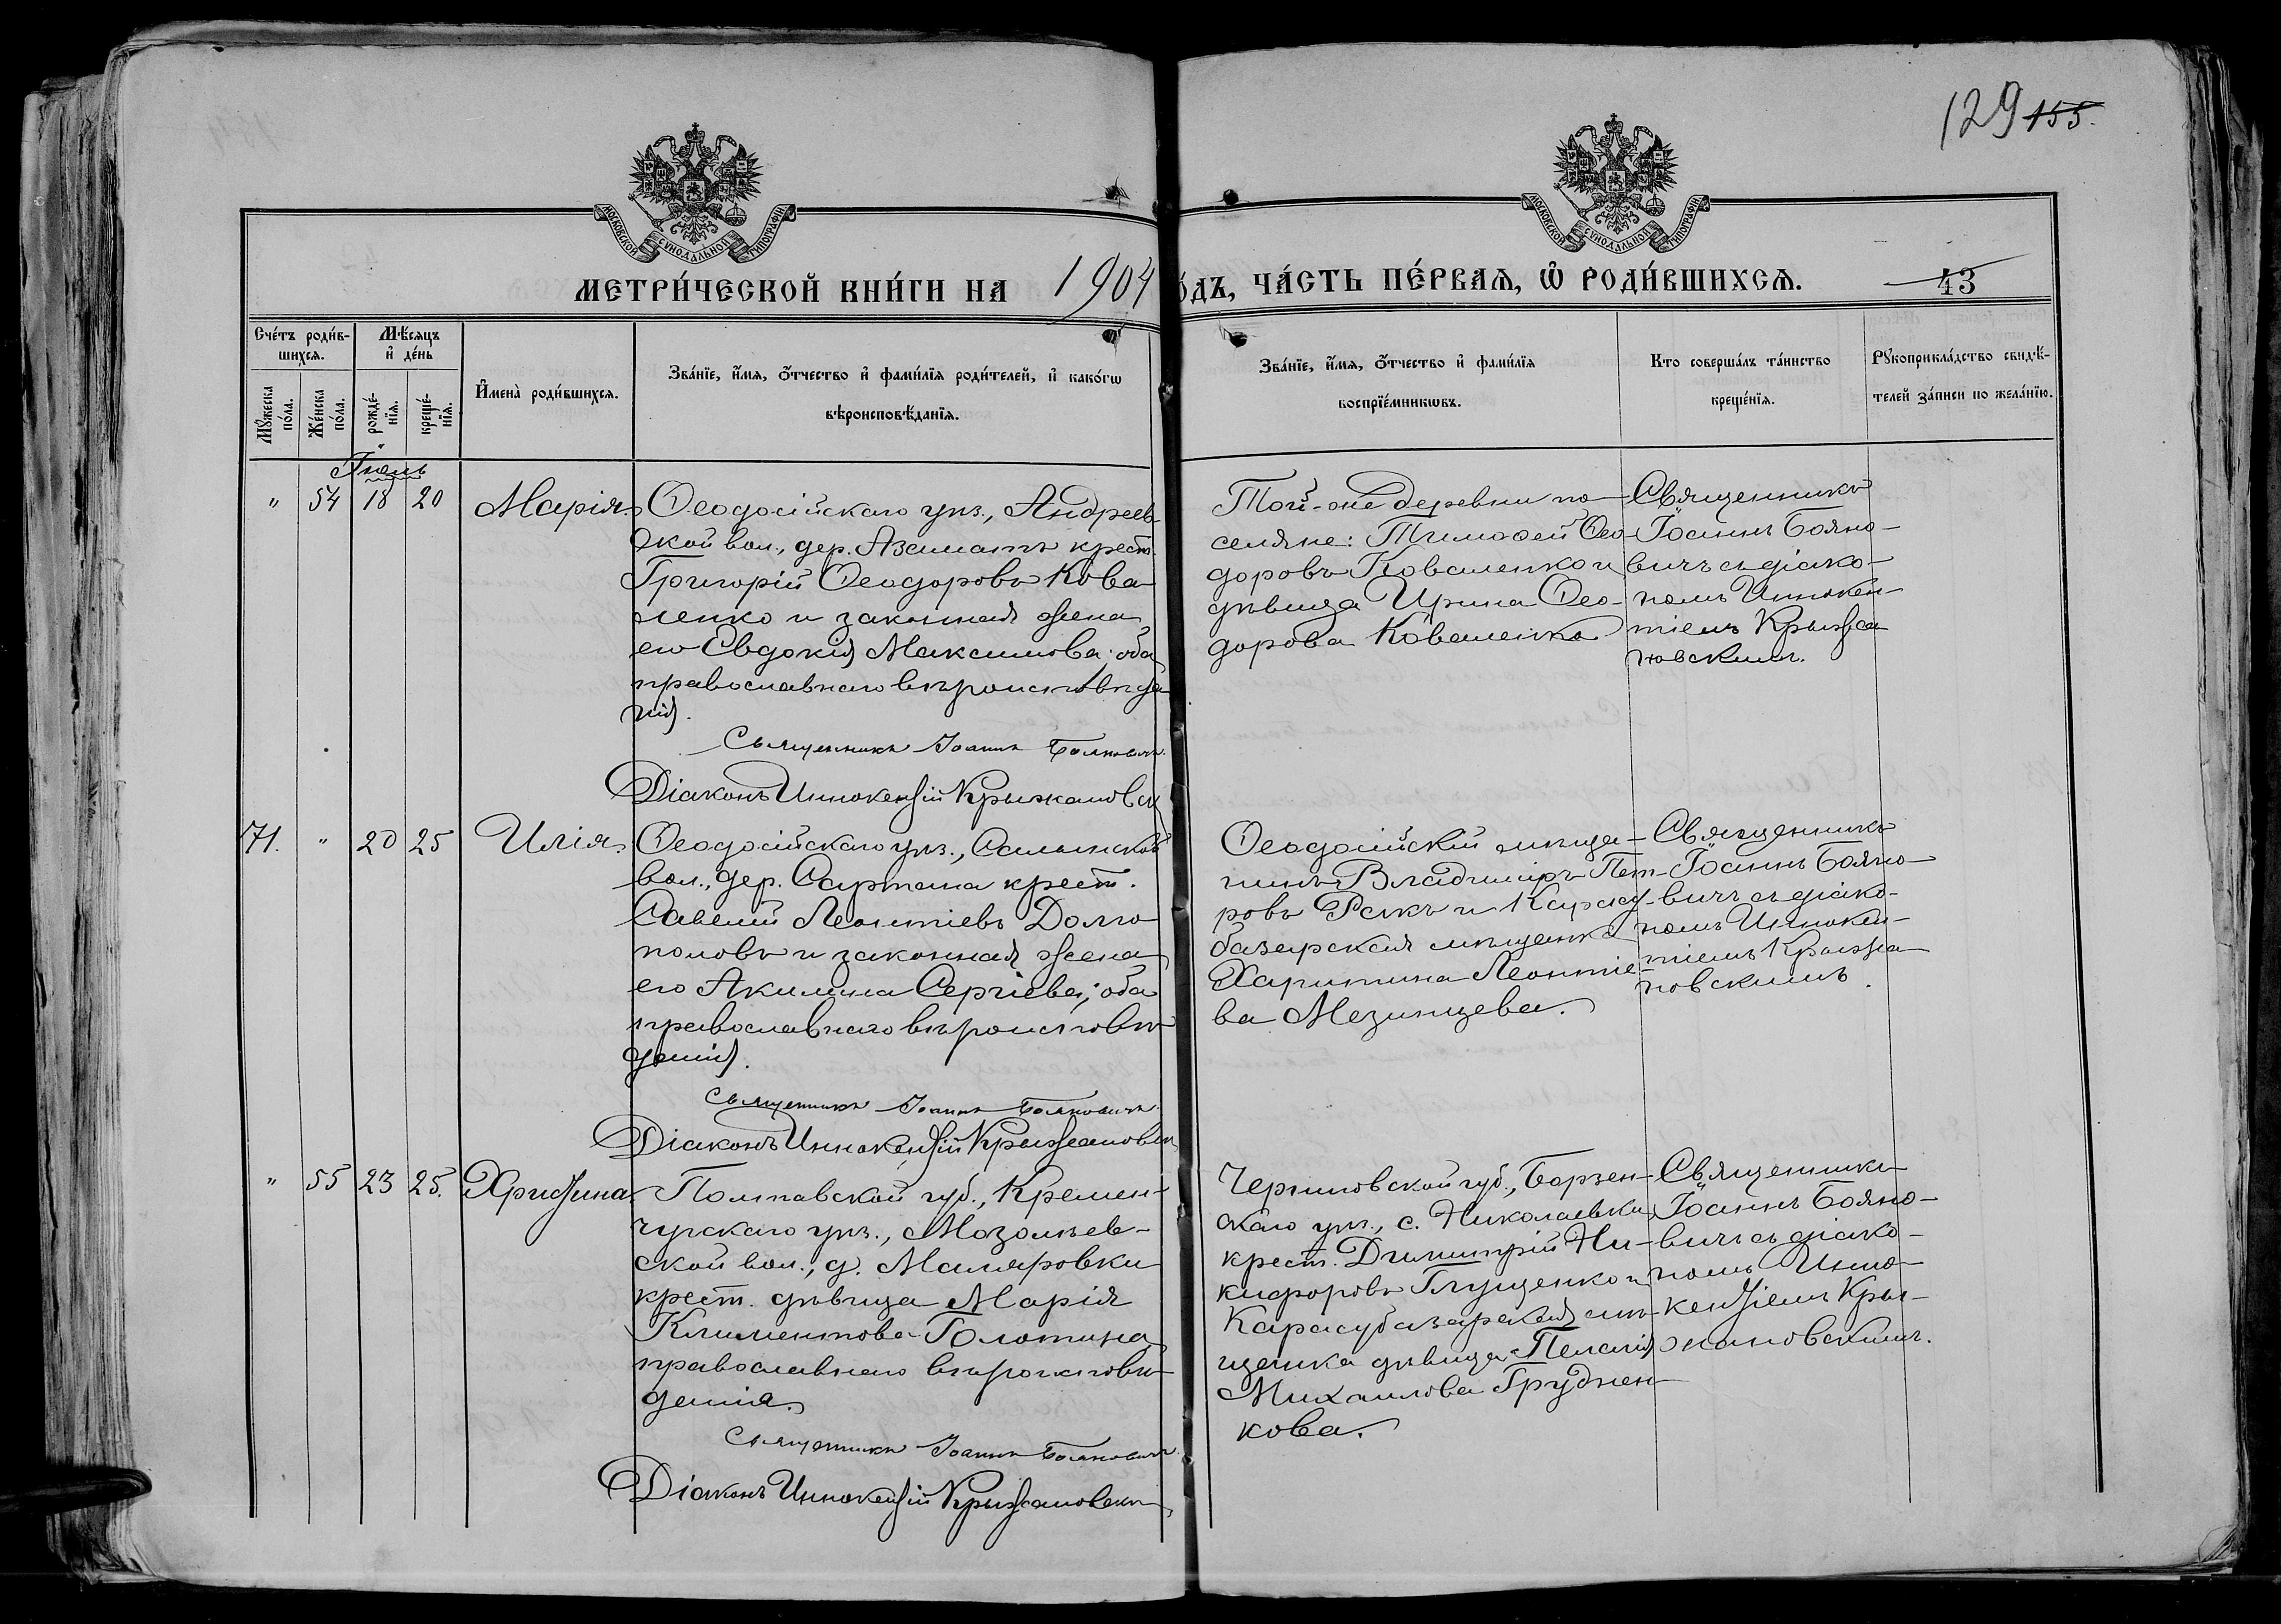 129 155.
МОСКОВСКОЙ СУНОДАЛЬНОЙ ТИПОГРАФІИ
МОСКОВСКОЙ СУНОДАЛЬНОЙ ТИПОГРАФІИ
МЕТРИ́ЧЕСКОЙ КНИ́ГИ НА 1904
О́ДЪ, ЧА́СТЬ ПЕ́РВАѦ, Ѡ҆ РОДИ́ВШИХСѦ.
43
Сче́тъ роди́в-
шихсѧ.
Мꙋ́жеска
по́ла.
Же́нска
по́ла.
Мѣ́сѧцъ
и҆ де́нь
рожде́-
нїѧ.
креще́-
нїѧ.
И҆мена̀ роди́вшихсѧ.
Зва́нїе, и҆́мѧ, ѻ҆́тчество и҆ фами́лїѧ роди́телей, и҆ како́гѡ
вѣроисповѣ́данїѧ.
Зва́нїе, и҆́мѧ, ѻ҆́тчество и҆ фами́лїѧ
воспрїе́мникѡвъ.
Кто соверша́лъ та́инство
креще́нїѧ.
Рꙋкоприкла́дство свидѣ́-
телей за́писи по жела́нїю.
Іюль
" 54 18 20
Марія.
Ѳеодосійскаго уѣз., Андреев-
ской вол., дер. Азаматъ крест.
Григорій Ѳеодоровъ Кова-
ленко и законная жена
его Евдокія Максимова; оба
православнаго вѣроисповѣда
нія.
Священникъ Іоаннъ Бояновичъ.
Діаконъ Иннокентій Крыжановск
Той-же деревни по-
селяне: Тимоѳей Ѳео-
доровъ Коваленко и
дѣвица Ирина Ѳео-
дорова Коваленко
Священникъ
Іоаннъ Бояно-
вичъ съ діако-
номъ Иннокен-
тіемъ Крыжа
новскимъ.
71. " 20 25
Илія.
Ѳеодосійскаго уѣз., Салынской
вол., дер. Сартана крест.
Савелій Леонтіевъ Долго-
половъ и законная жена
его Акилина Сергіева; оба
православнаго вѣроисповѣ-
данія.
Священникъ Іоаннъ Бояновичъ.
Діаконъ Иннокентій Крыжановск
Ѳеодосійскій мѣща-
нинъ Владиміръ Пет-
ровъ Ракъ и Карасу-
базарская мѣщанка
Харитина Леонтіе-
ва Мезинцева.
Священникъ
Іоаннъ Бояно-
вичъ съ діако-
номъ Иннокен-
тіемъ Крыжа
новскимъ.
" 55 23 25.
Христина.
Полтавской губ., Кремен-
чугскаго уѣз., Мозолѣев-
ской вол., д. Маляровки
крест. дѣвица Марія
Климентова Голотина
православнаго вѣроисповѣ-
данія.
Священникъ Іоаннъ Бояновичъ.
Діаконъ Иннокентій Крыжановски
Черниговской губ., Борзен-
скаго уѣз., с. Николаевки,
крест. Димитрій Ни-
кифоровъ Глущенко и
Карасубазарская мѣ-
щанка дѣвица Пелагія
Михаилова Груднен-
кова.
Священникъ
Іоаннъ Бояно-
вичъ съ діако-
номъ Инно-
кентіемъ Кры-
жановскимъ.